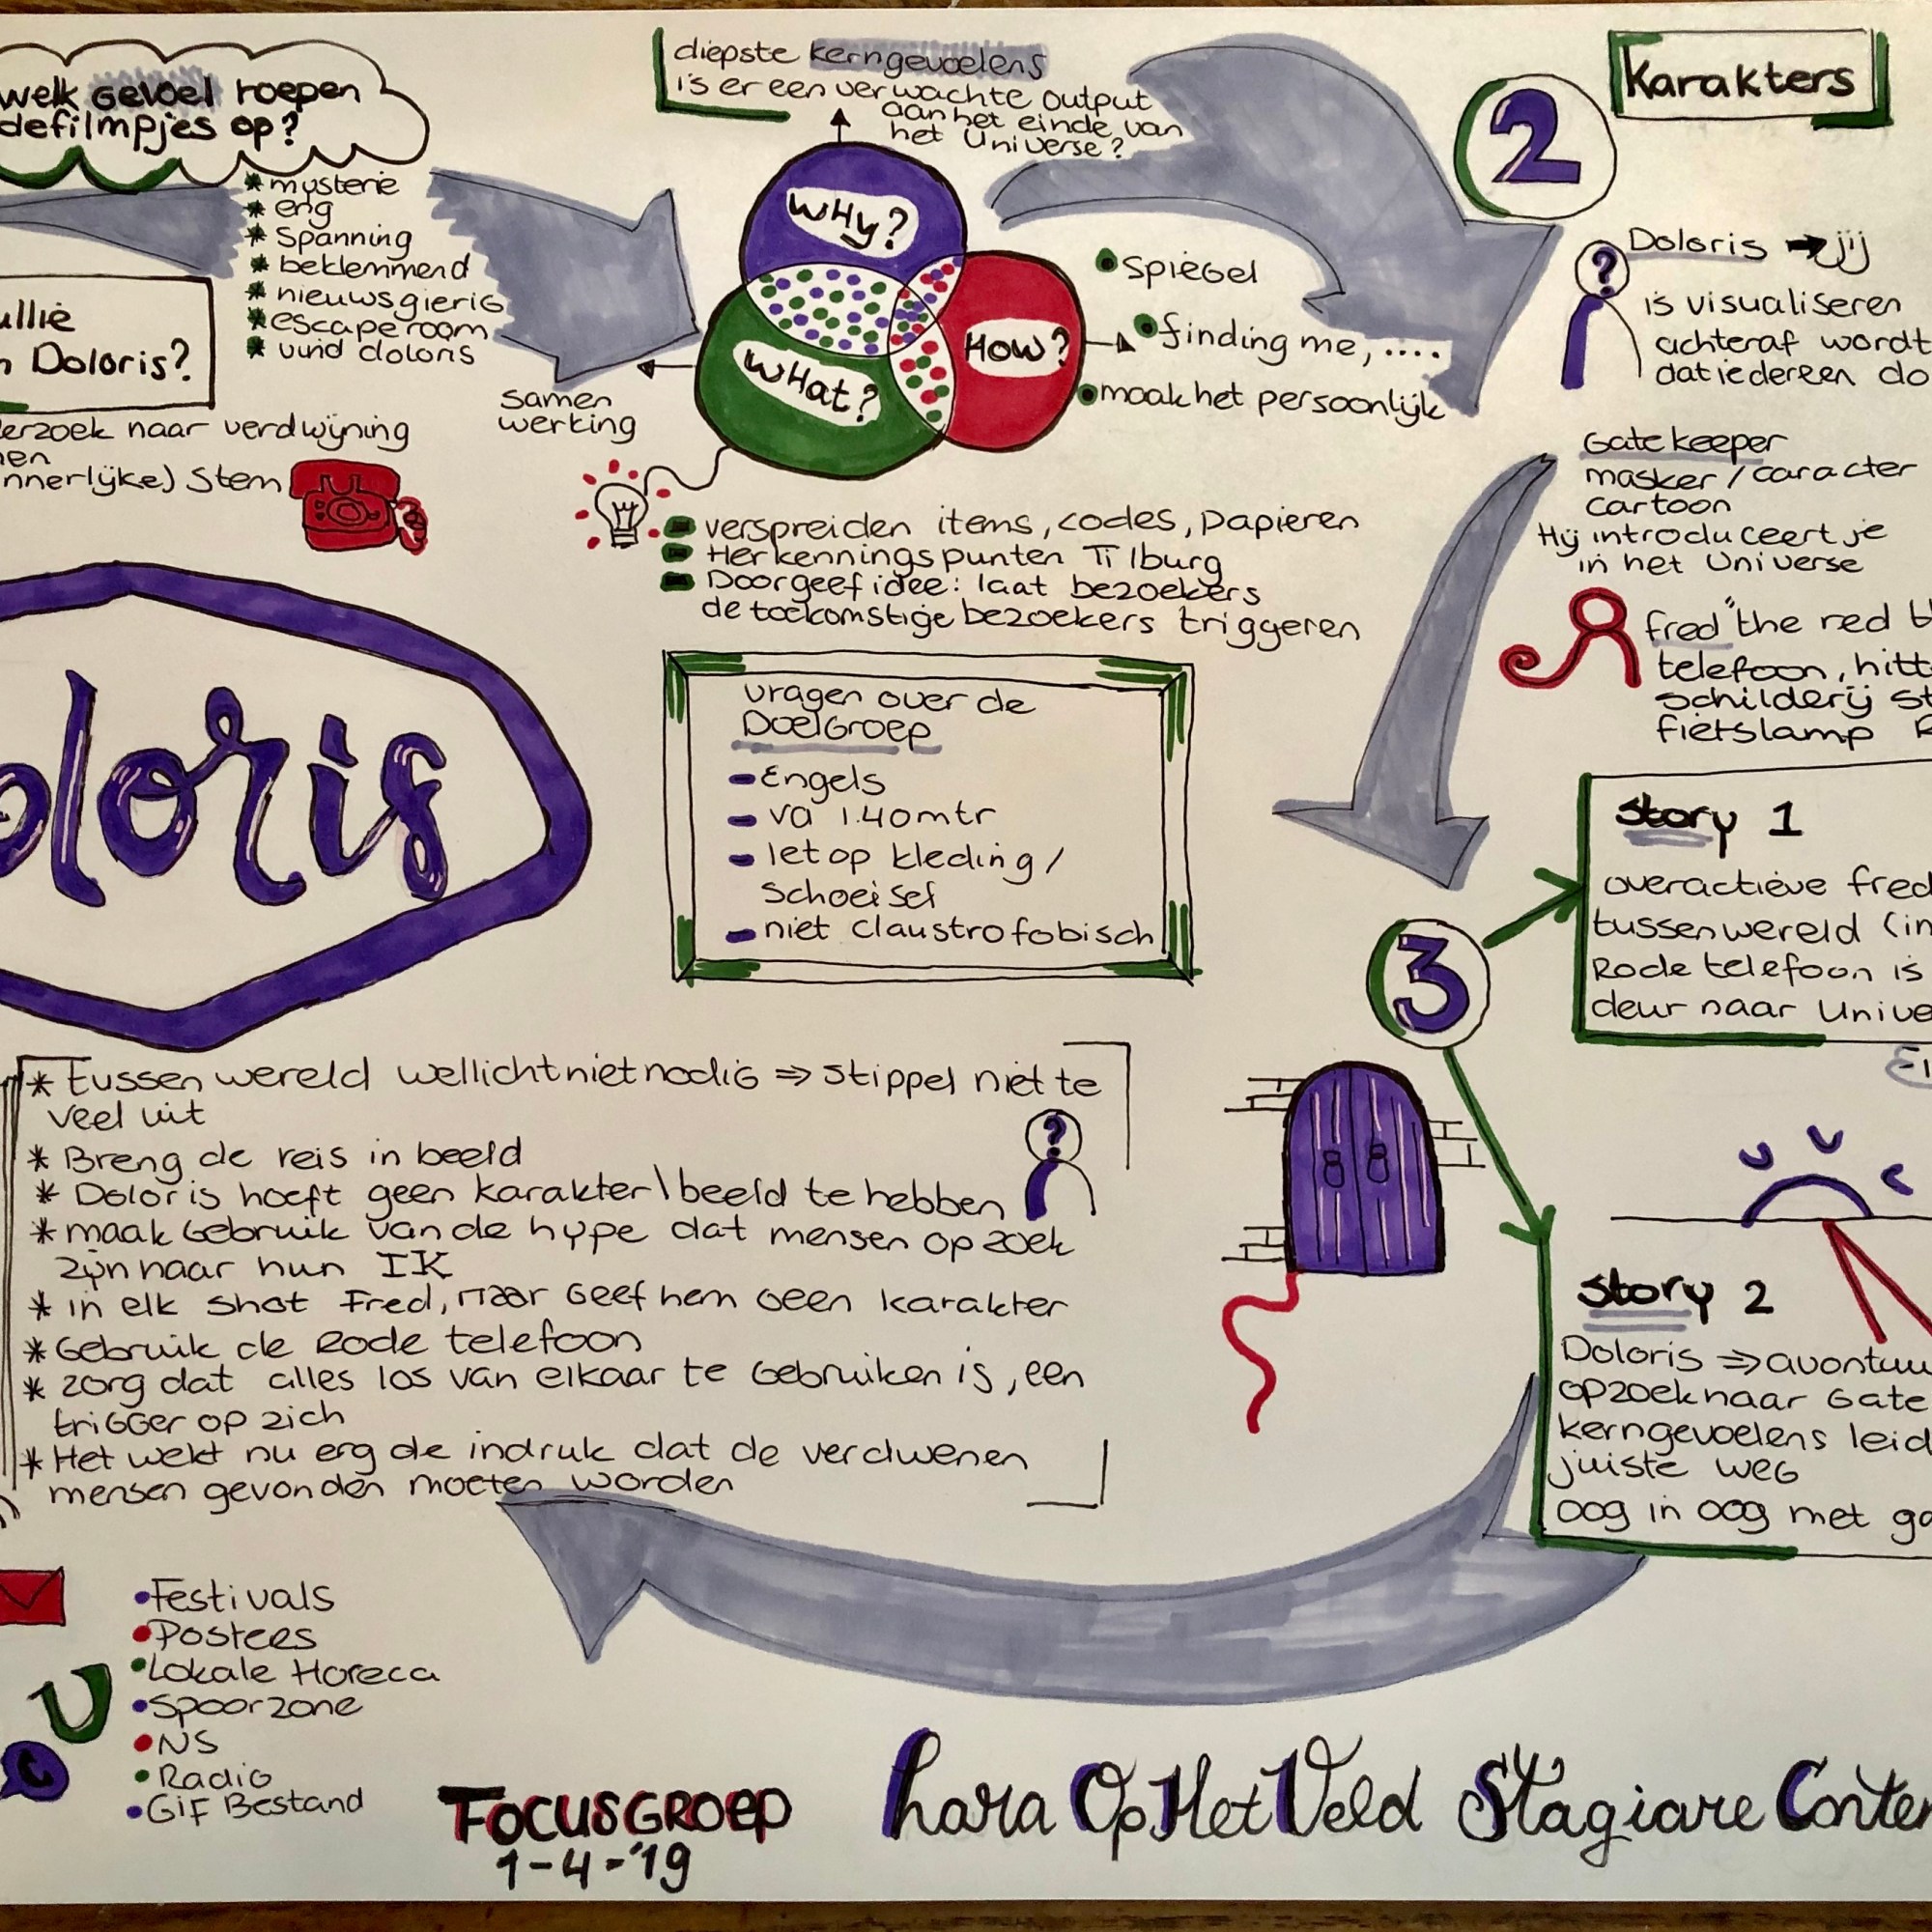 welk GEVOEL roepen
de filmpjes op?
* mysterie
* eng
* spanning
* beklemmend
* nieuwsgierig
* escape room
* vind doloris
ullie
n Doloris?
erzoek naar verdwijning
nen
nnerlijke) stem
oloris
diepste kerngevoelens
is er een verwachte output
aan het einde van
het Universe?
WHY?
WHat?
HOW?
samen
werking
• spiegel
• finding me, ....
• maak het persoonlijk
verspreiden items, codes, papieren
Herkenningspunten Tilburg
Doorgeef idee: laat bezoekers
de toekomstige bezoekers triggeren
vragen over de
Doelgroep
- Engels
- va 1.40mtr
- let op kleding /
schoeisel
- niet claustrofobisch
2
Karakters
Doloris → jij
?
is visualiseren
achteraf wordt
dat iedereen do
Gatekeeper
masker / caracter
cartoon
Hij introduceert je
in het Universe
fred "the red t
telefoon, hitt
schilderij st
fietslamp R
3
Story 1
overactieve fred
tussenwereld (in
Rode telefoon is
deur naar Unive
Ei
Story 2
Doloris ⇒ avontuu
op zoek naar Gate
kerngevoelens leid
juiste weg
oog in oog met ga
* Tussenwereld wellicht niet nodig ⇒ stippel niet te
veel uit
* Breng de reis in beeld
* Doloris hoeft geen karakter\beeld te hebben
?
* maak gebruik van de hype dat mensen op zoek
zijn naar hun IK
* in elk shot Fred, maar geef hem geen karakter
* Gebruik de Rode telefoon
* zorg dat alles los van elkaar te gebruiken is, een
trigger op zich
* Het wekt nu erg de indruk dat de verdwenen
mensen gevonden moeten worden
• Festivals
• Postees
• Lokale Horeca
• Spoorzone
• NS
• Radio
• GIF Bestand
FOCUSGROEP
1-4-'19
Lara Op Het Veld Stagiare Conten